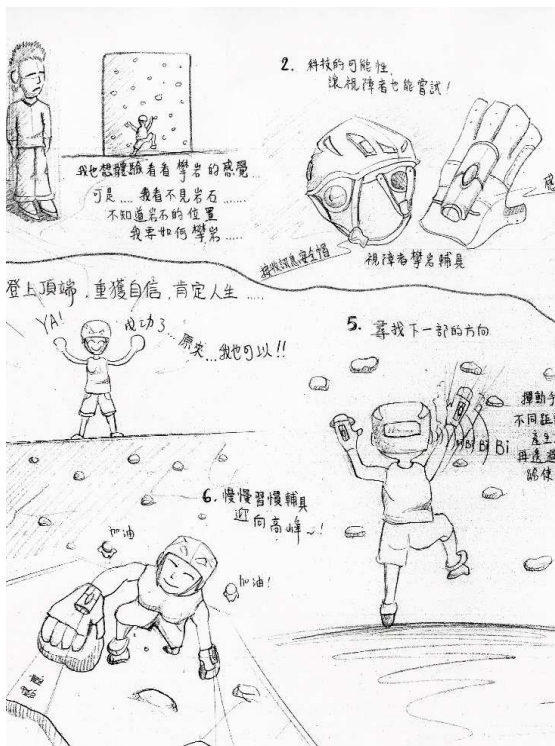 我也想體驗看看攀岩的感覺
可是..... 我看不見岩石......
不知道岩石的位置
我要如何攀岩......
2. 科技的可能性,
讓視障者也能嘗試!
接收訊息安全帽
視障者攀岩輔具
感
登上頂端,重獲自信,肯定人生.....
YA!
成功了...
原來...我也可以!!
5. 尋找下一部的方向
揮動手
不同距
產生
再透過
Bi Bi Bi
6. 慢慢習慣輔具
迎向高峰~!
加油
加油!